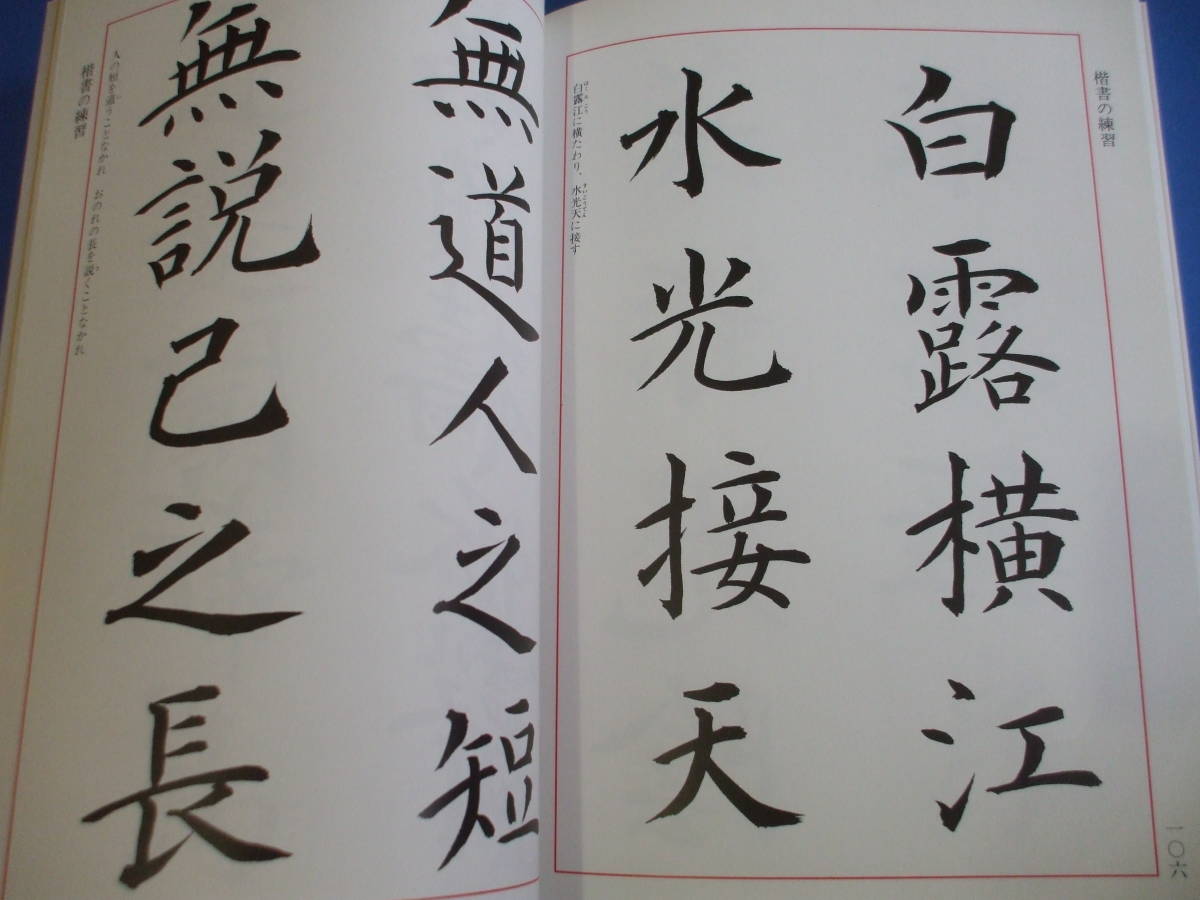 楷書の練習
白露横江
水光接天
白露江に横たわり、水光天に接す
一〇六
無道人之短
無説己之長
人の短を道うことなかれ おのれの長を説くことなかれ
楷書の練習